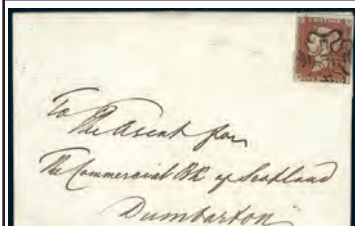 POSTAGE
To
The Agent for
The Commercial Bk of Scotland
Dumbarton